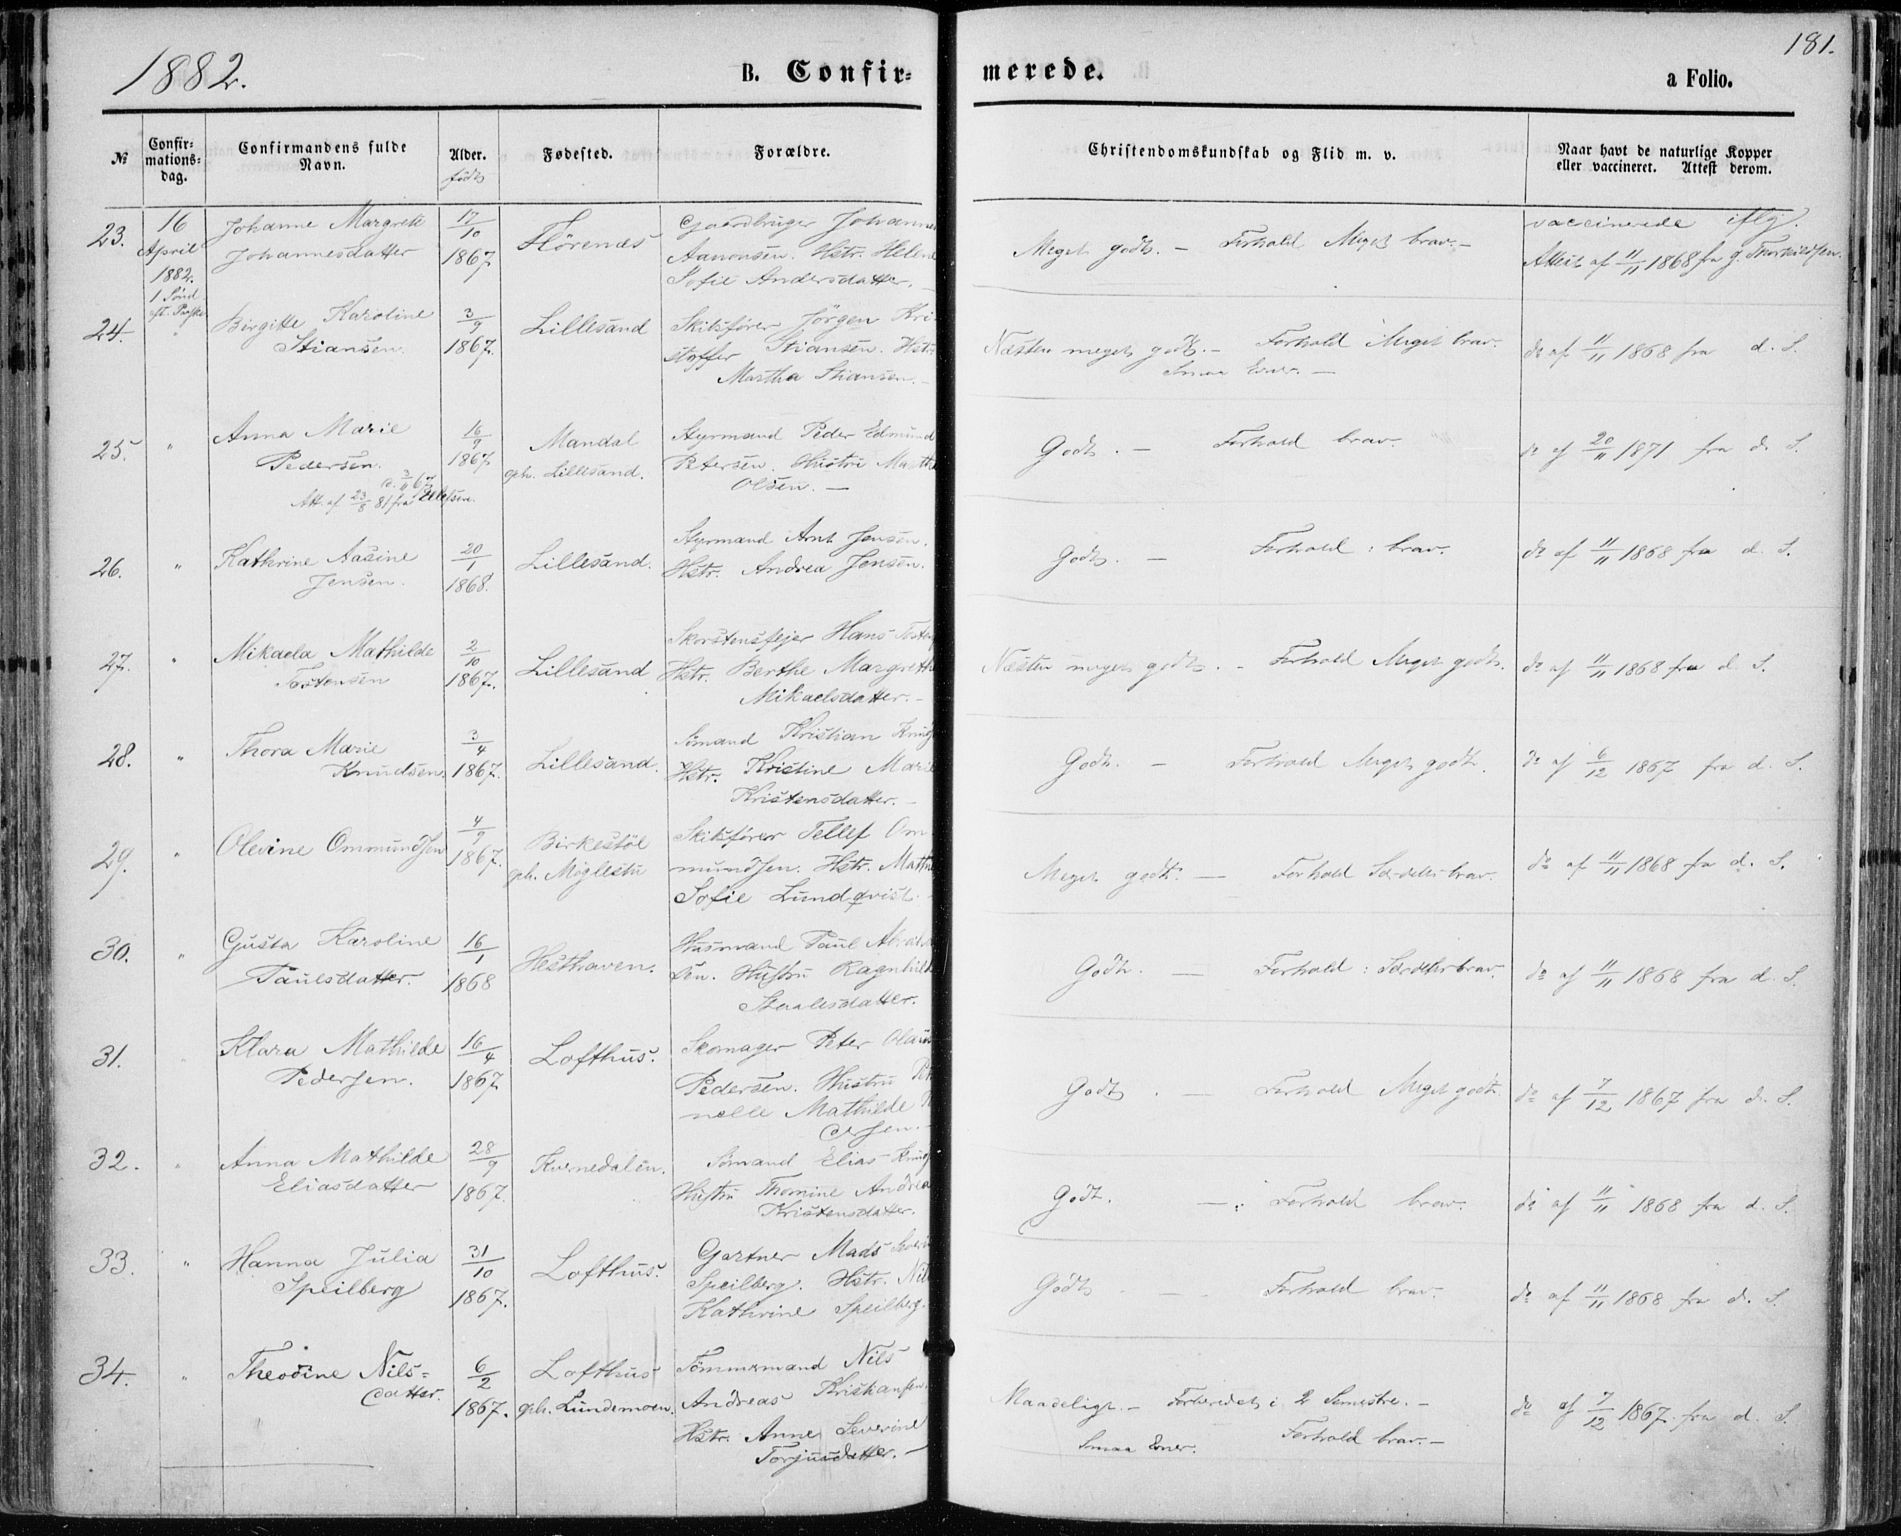 1882.
B. Confir-
merede.
181.
a Folio.
№
Confir-
mations-
dag.
Confirmandens fulde
Navn.
Alder.
født
Fødested.
Forældre.
Christendomskundskab og Flid m. v.
Naar havt de naturlige Kopper
eller vaccineret. Attest derom.
23.
16
April
1882.
1 Sønd
eft. Paaske
Johanne Margrete
Johannesdatter
17/10
1867
Hørenes
Gaardbruger Johannes
Aanonsen. Hstr. Helene
Sofie Andersdatter. –
Meget godt. – Forhold Meget brav. –
vaccinerede iflg.
Attest af 11/11 1868 fra G. Thorkildsen.
24.
"
Birgitte Karoline
Stiansen.
3/9
1867.
Lillesand
Skibsfører Jörgen Kri-
stoffer Stiansen. Hstr.
Martha Stiansen. –
Næsten meget godt. – Forhold Meget brav.
Smaa Evner. –
do af 11/11 1868 fra d. S.
25.
"
Anna Marie
Pedersen.
Att. af 23/8 81 fra
16/9
1867
Mandal
gph. Lillesand.
Styrmand Peder Edmund
Petersen. Hustru Marthe
Olsen. –
Godt. – Forhold brav.
do af 20/11 1871 fra d. S.
26.
"
Kathrine Aasine
Jensen.
20/1
1868.
Lillesand.
Styrmand Arnt Jensen.
Hstr. Andrea Jensen.
Godt. – Forhold : brav.
do af 11/11 1868 fra d. S.
27.
"
Mikaela Mathilde
Tostensen
2/10
1867.
Lillesand
Skorstensfejer Hans
Hstr. Berthe Margrethe
Mikaelsdatter. –
Næsten meget godt. – Forhold Meget godt.
do af 11/11 1868 fra d. S.
28.
"
Thora Marie
Knudsen.
3/4
1867.
Lillesand.
Sømand Kristian
Hstr. Kristine Marie
Kristensdatter. –
Godt. – Forhold Meget godt.
do af 6/12 1867 fra d. S.
29.
"
Olevine Ommundsen
4/9
1867.
Birkestöl
gph. Möglestu
Skibsfører Tellef Om-
mundsen. Hstr.
Sofie Lundqvist. –
Meget godt. – Forhold Særdeles brav.
do af 11/11 1868 fra d. S.
30.
"
Gusta Karoline
Paulsdatter.
16/1
1868
Hesthaven.
Husmand Paul
sen. Hustru Ragnhild
Staalesdatter.
Godt. – Forhold : Særdeles brav.
do af 11/11 1868 fra d. S.
31.
"
Klara Mathilde
Pedersen.
16/4
1867
Lofthus.
Skomager Peter Olaus
Pedersen. Hustru Pet
nelle Mathilde
Godt. – Forhold Meget godt.
do af 7/12 1867 fra d. S.
32.
"
Anna Mathilde
Eliasdatter
28/9
1867.
Kvernedalen.
Sømand Elias
Hustru Thomine Andrea
Kristensdatter.
Godt. – : Forhold brav.
do af 11/11 1868 fra d. S.
33.
"
Hanna Julia
Speilberg
31/10
1867.
Lofthus.
Gartner Mads
Speilberg. Hstr.
Kathrine Speilberg.
Godt. – Forhold brav.
do af 11/11 1868 fra d. S.
34.
"
Theodine Nils-
datter.
6/2
1867.
Lofthus
gph. Lundemoen.
Tømmermand Nils
Andreas Kristiansen.
Hstr. Anne Severine
Torjusdatter. –
Maadeligt. – Forberedet i 2 Semestre. –
Smaa Evner. Forhold brav. –
do af 7/12 1867 fra d. S.